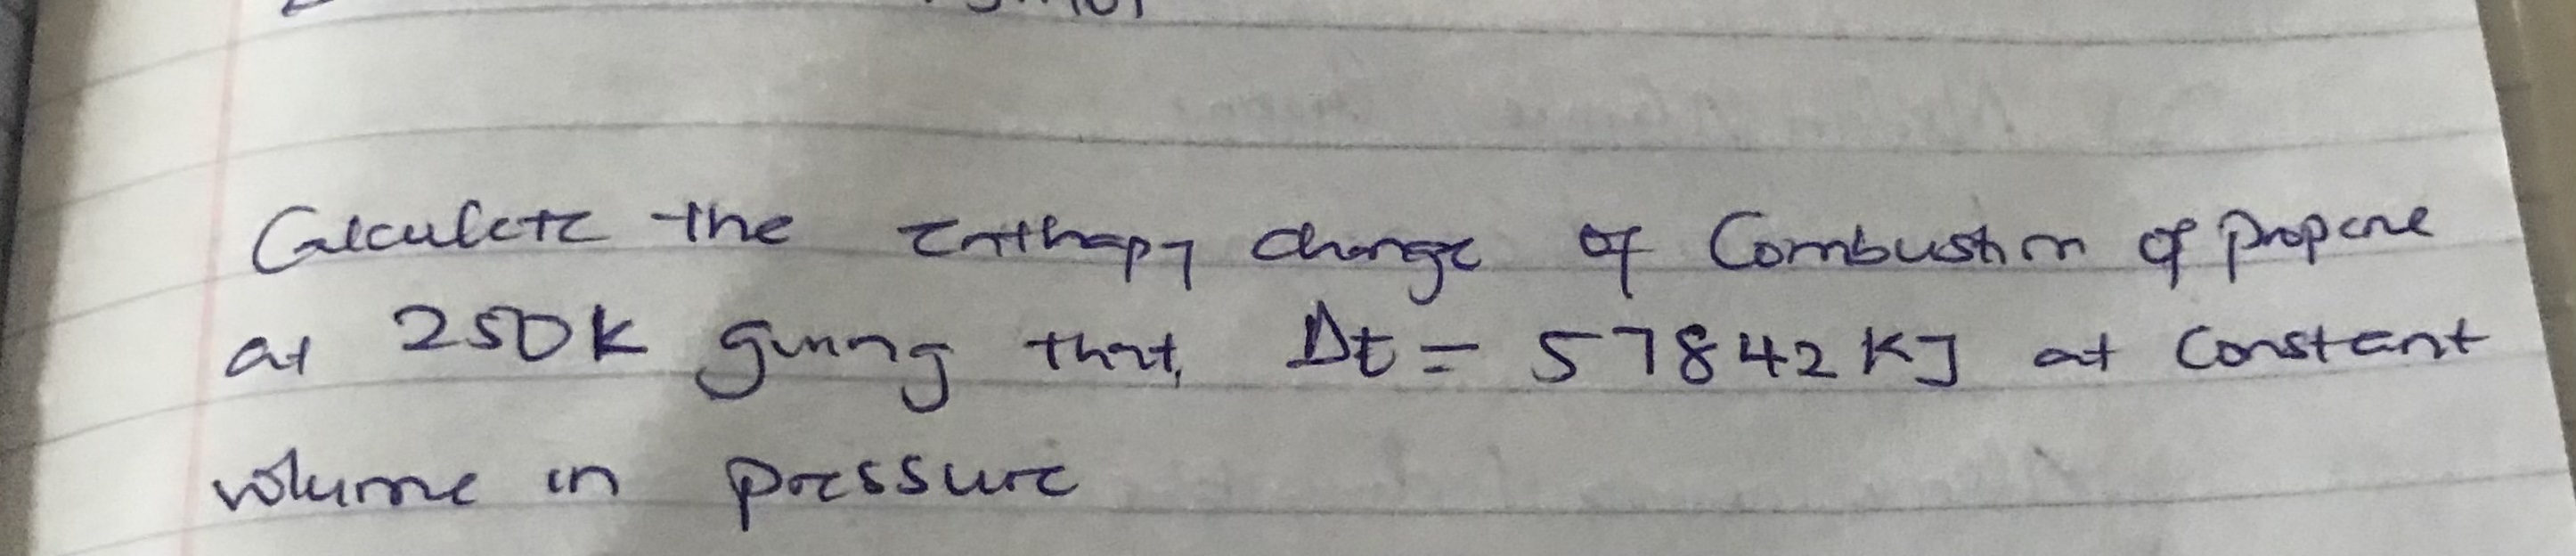 Calculate the Enthapy change of Combustion of propane
at 250K giving that, Δt = 57842 KJ at Constant
volume in pressure